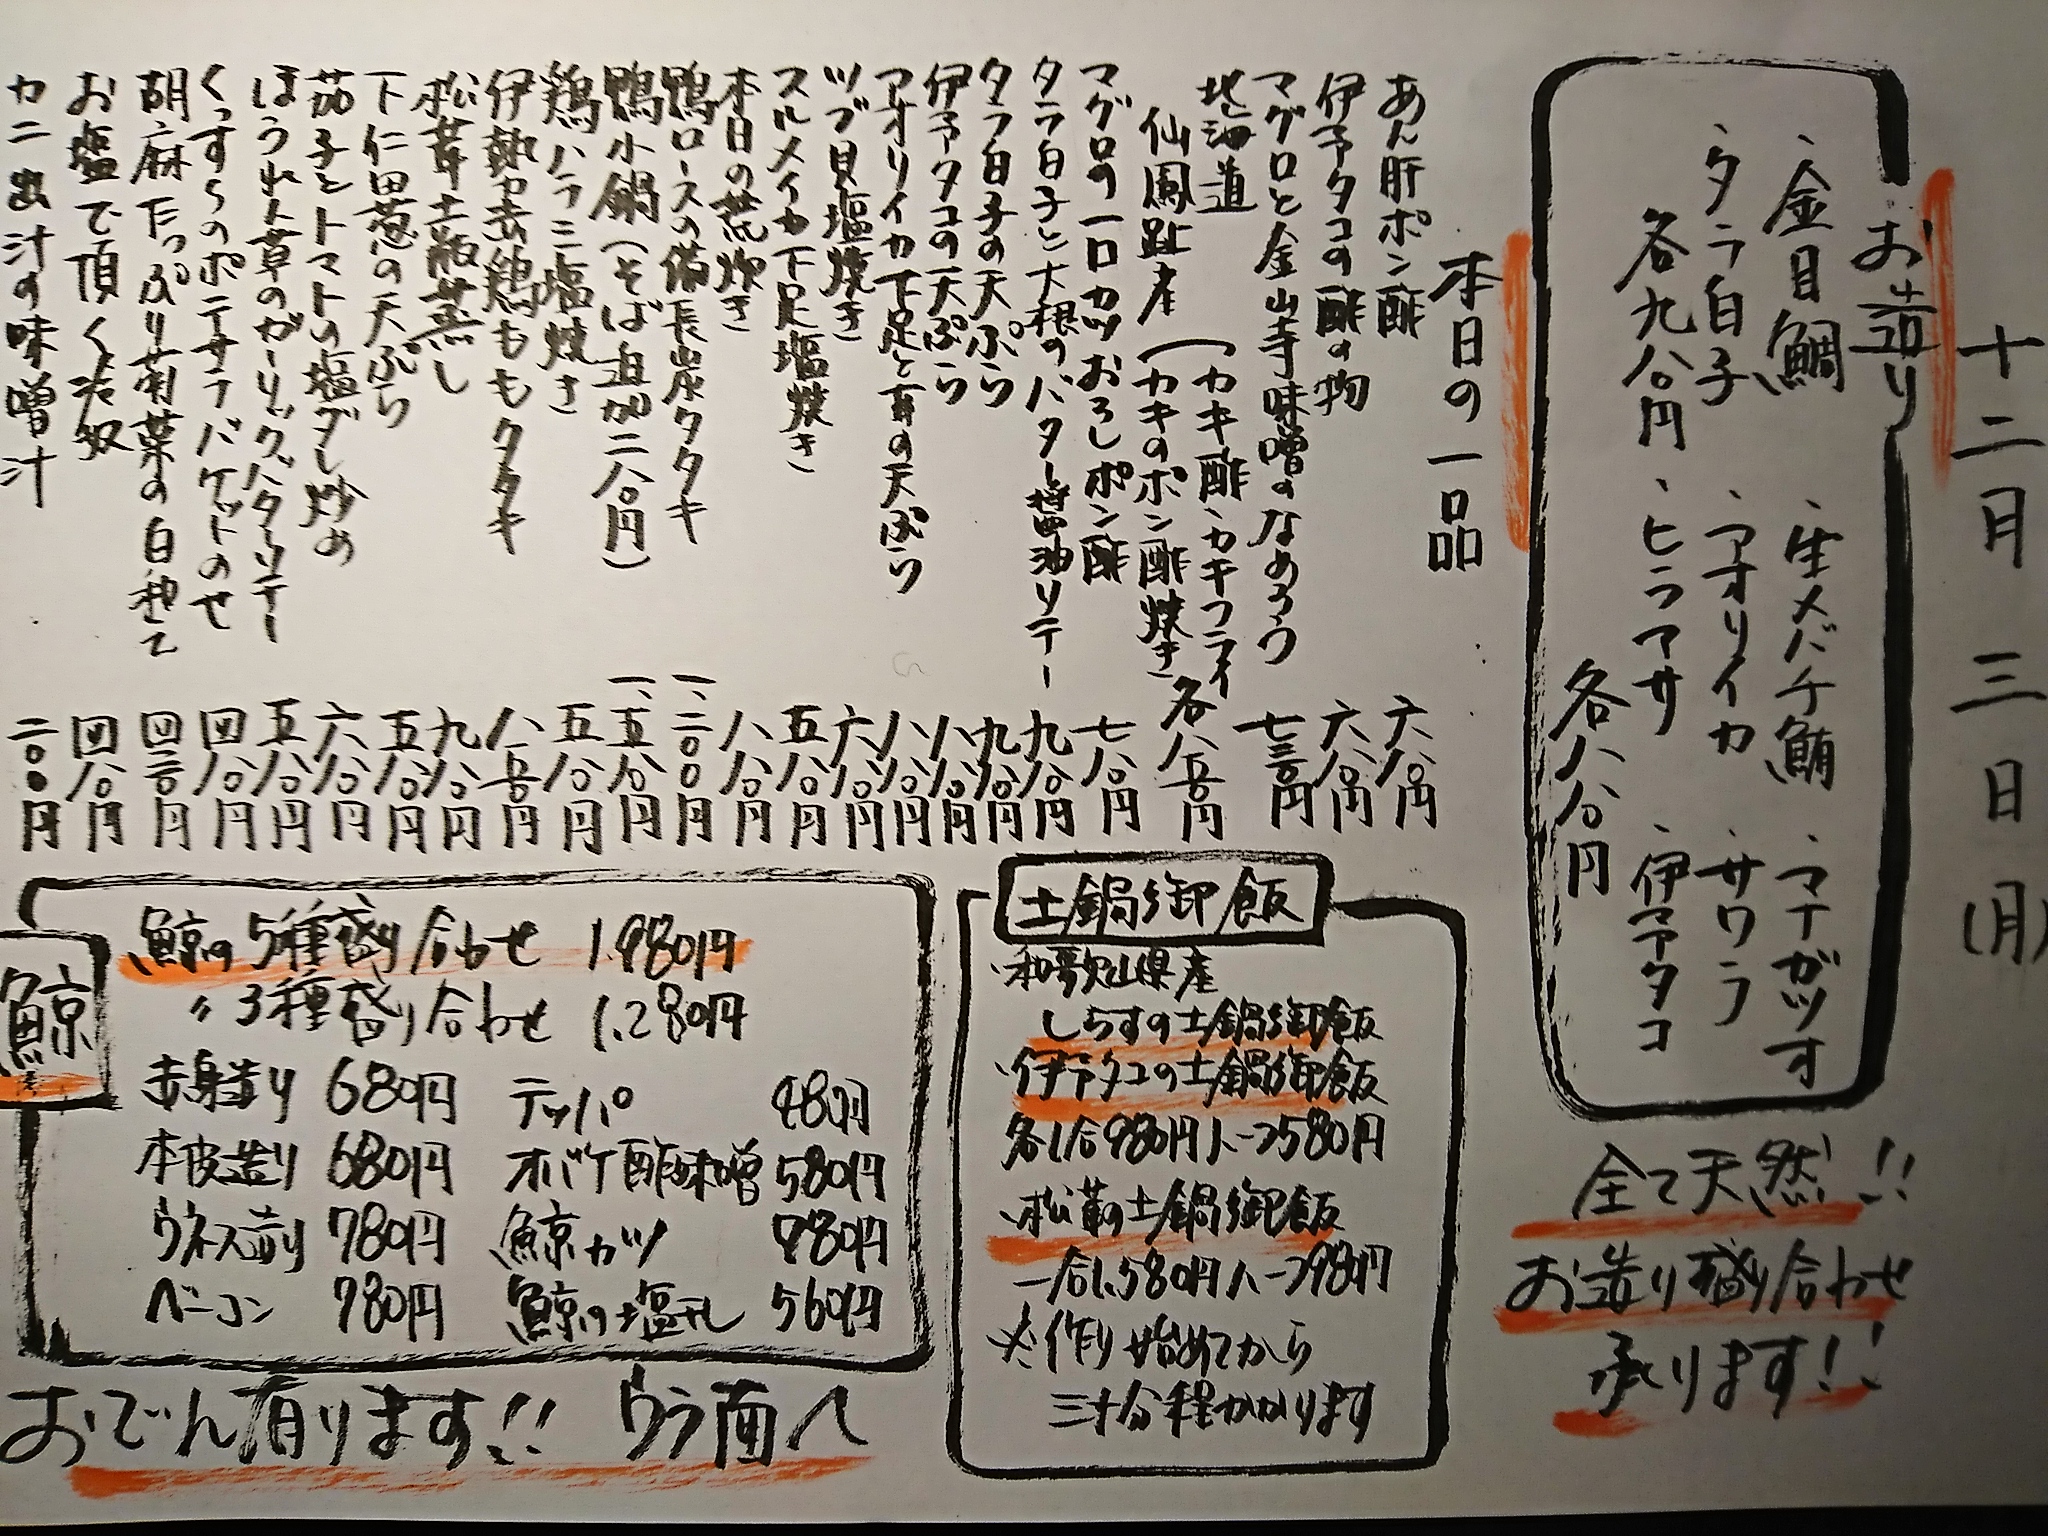 十二月三日(月)
お造り
・金目鯛
・タラ白子
各九八〇円
・生メバチ鮪
・アオリイカ
・ヒラマサ
・マナガツオ
・サワラ
・伊予タコ
各八八〇円
全て天然!!
お造り盛り合わせ
承ります!!
本日の一品
あん肝ポン酢 六八〇円
伊予タコの酢の物 六八〇円
マグロと金山寺味噌のなめろう 七三〇円
北海道
仙鳳趾産
(カキ酢、カキフライ
(カキのポン酢焼き 各八五〇円
マグロの一口カツおろしポン酢 七八〇円
タラ白子と大根のバター醤油ソテー 九八〇円
タラ白子の天ぷら 九八〇円
伊予タコの天ぷら 八八〇円
アオリイカ下足と耳の天ぷら 八八〇円
ツブ貝塩焼き 六八〇円
スルメイカ下足塩焼き 五八〇円
本日の荒炊き 八八〇円
鴨ロースの備長炭タタキ 一、二〇〇円
鴨小鍋(そば追加二八〇円) 一、五八〇円
鶏ハラミ塩焼き 五八〇円
伊勢赤鶏ももタタキ 八五〇円
松茸土瓶蒸し 九八〇円
下仁田葱の天ぷら 五八〇円
茄子とトマトの塩ダレ炒め 六八〇円
ほうれん草のガーリックバターソテー 五八〇円
くっすらのポテサラバケットのせ 四八〇円
胡麻たっぷり菊菜の白和え 四三〇円
お塩で頂く冷奴 四八〇円
カニ出汁の味噌汁 二〇〇円
土鍋御飯
・和歌山県産
しらすの土鍋御飯
・伊予タコの土鍋御飯
各1合980円ハーフ580円
・松茸の土鍋御飯
一合1.580円ハーフ980円
※作り始めてから
三十分程かかります
鯨
鯨の5種盛り合わせ 1.980円
〃3種盛り合わせ 1.280円
赤身造り 680円
本皮造り 680円
ウネス造り 780円
ベーコン 780円
テッパ 480円
オバケ酢味噌 580円
鯨カツ 780円
鯨の塩干し 560円
おでん有ります!! ウラ面へ